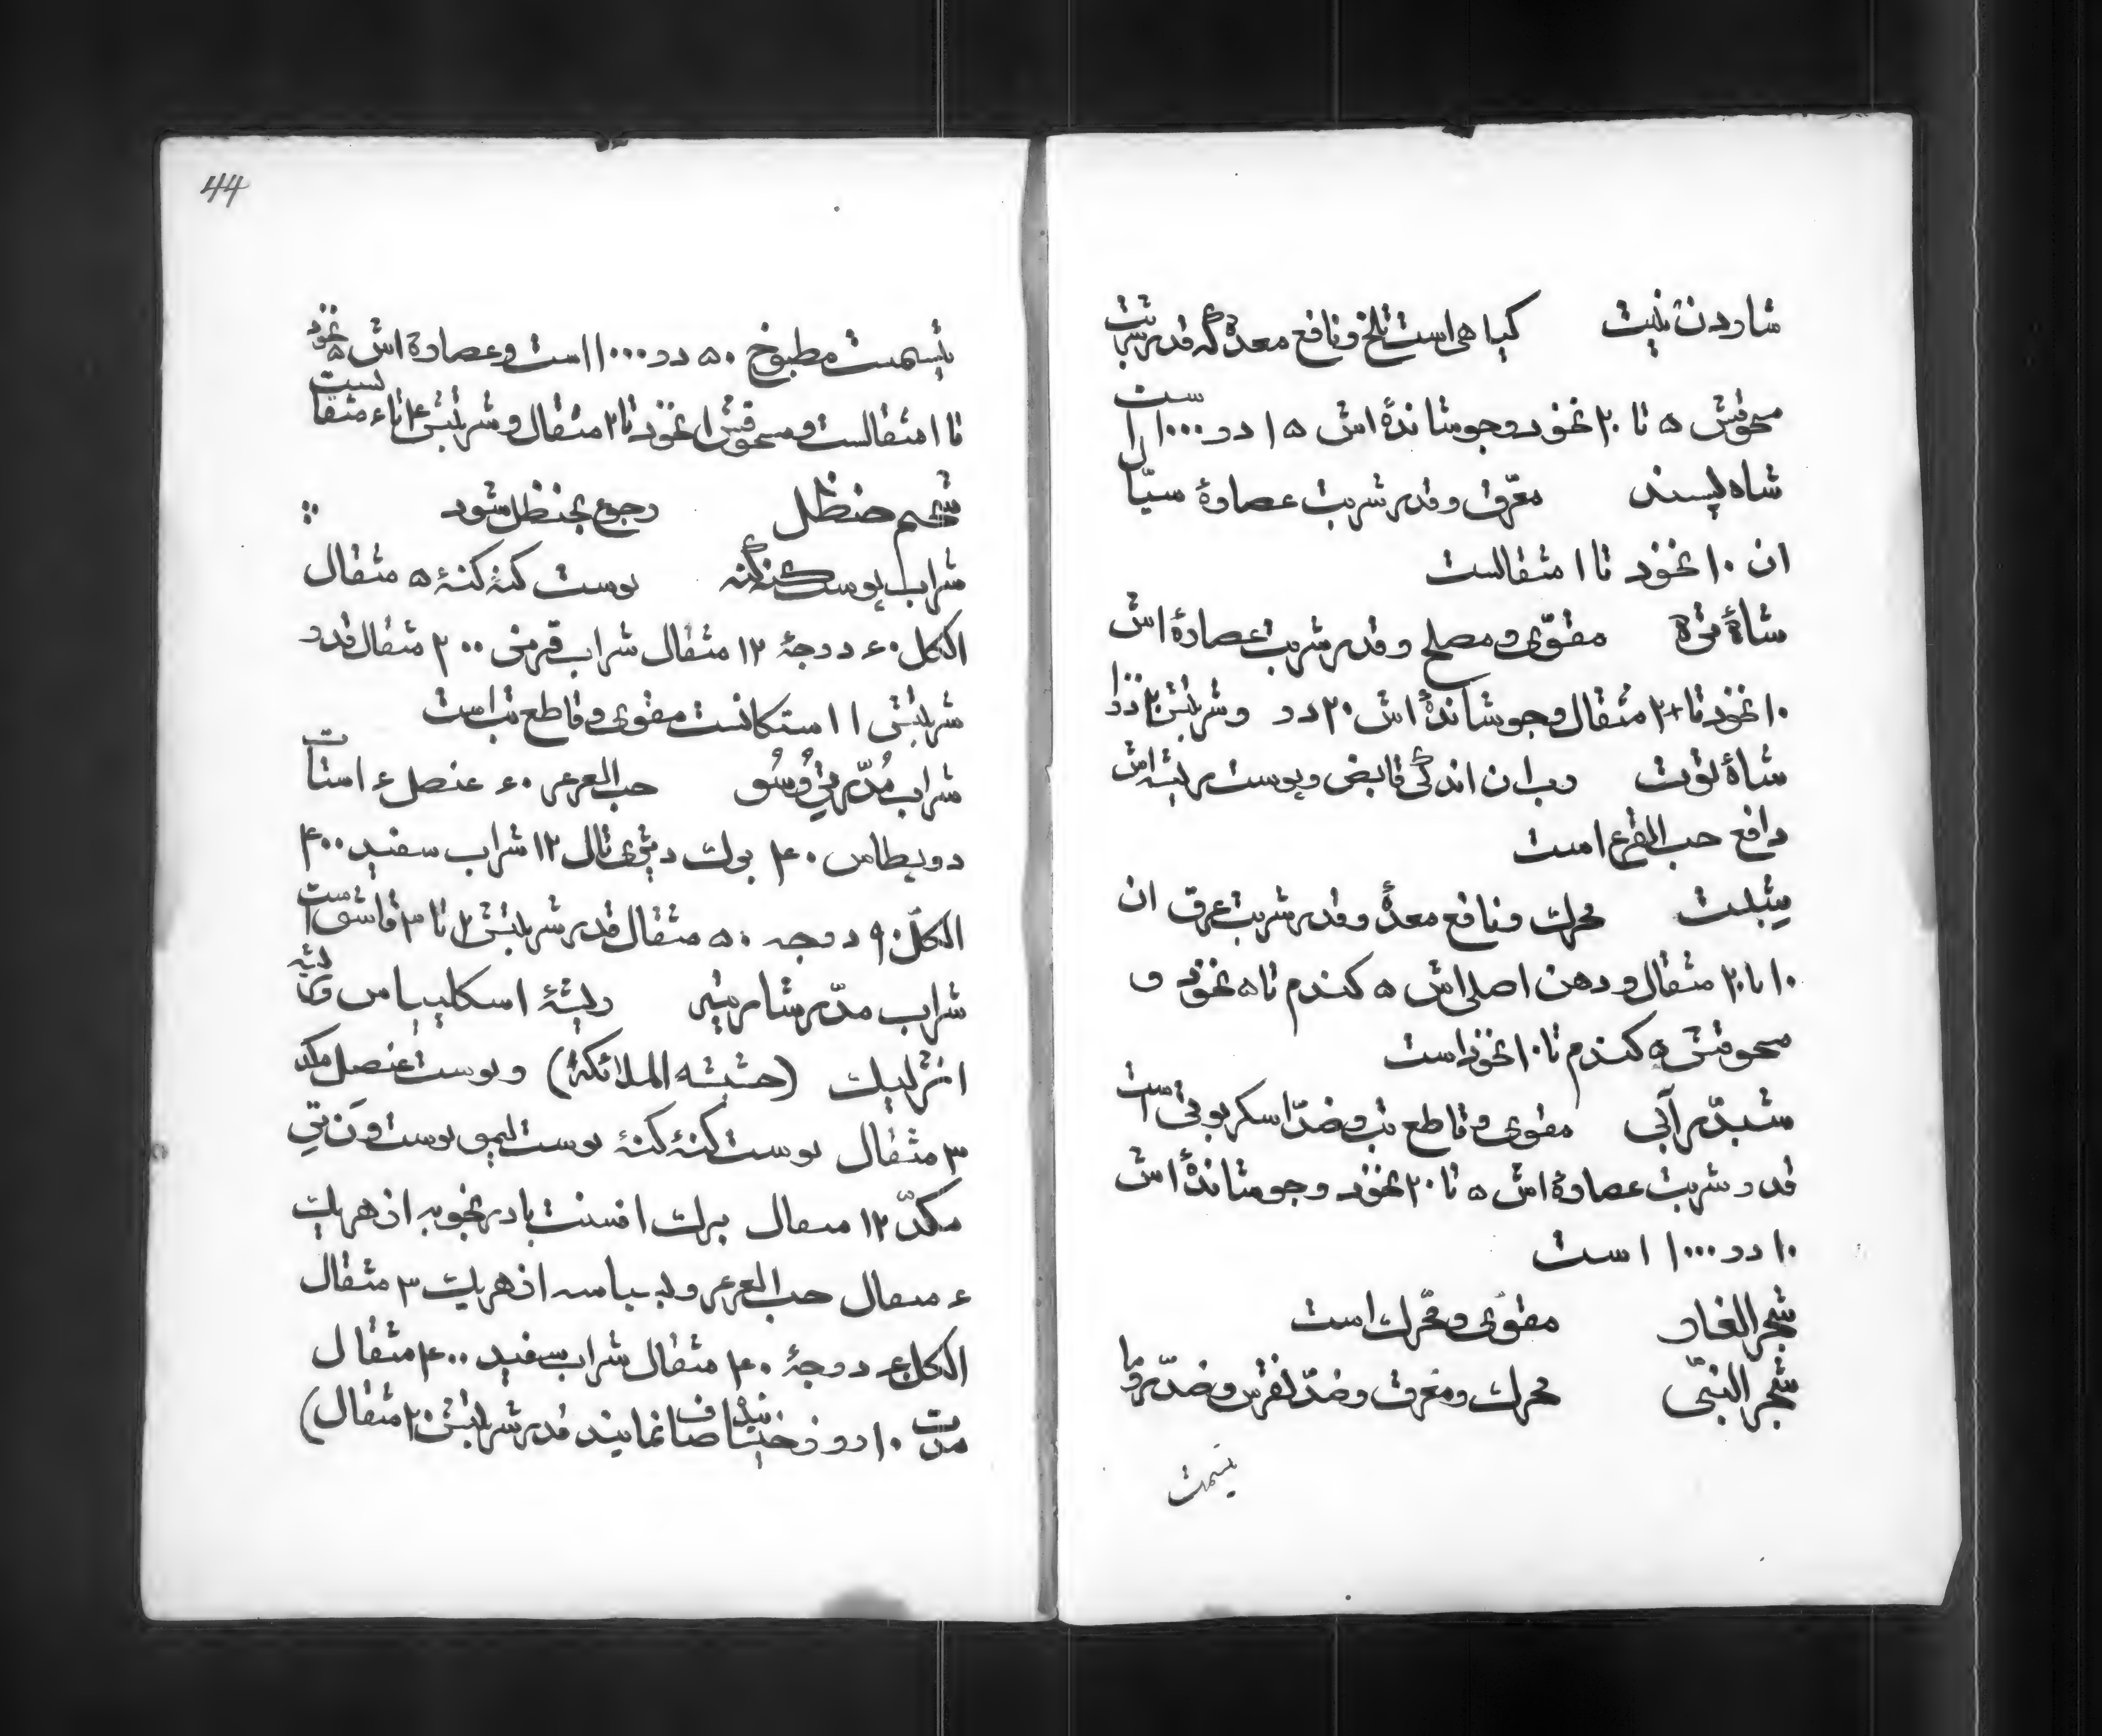 شاردن بنیت کیاهی است تلخ و نافع معده که قدر شربت
مسحوقش ۵ تا ۲۰ نخود و جوشاندهٔ اش ۱۵ در ۱۰۰۰ است
شاه پسند معرّق و قدر شربت عصارهٔ سیّال
ان ۱۰ نخود تا ۱ مثقالست
شاه تره مقوّی و مصلح و قدر شربت عصارهٔ اش
۱۰ نخود تا ۲ مثقال و جوشاندهٔ اش ۲۰ در و شربتش
شاه توت رب ان اندکی قابض و پوست ریشه اش
دافع حب القرع است
شبت محرک و نافع معده و قدر شربت عرق ان
۱۰ تا ۲۰ مثقال و دهن اصلی اش ۵ کندم تا ۵ نخود و
مسحوقش ۵ کندم تا ۱۰ نخود است
شبدر آبی مقوی و قاطع تب و ضدّ اسکربوتی است
قدر شربت عصارهٔ اش ۵ تا ۲۰ نخود و جوشاندهٔ اش
۱۰ در ۱۰۰۰ است
شجر الغار مقوّی و محرّک است
شجر النبّی محرک و معرق و ضدّ نقرس و ضدّ روما
تیسمت
44
تیسمت مطبوخ ۵۰ در ۱۰۰۰ است و عصارهٔ اش ۵ نخود
تا ۱ مثقالست و مسحوقش ۱۰ نخود تا ۲ مثقال و شربتش ۴ تا ۶ مثقالست
شحم حنظل رجوع بحنظل شود
شراب پوست کنه کنه پوست کنه کنهٔ ۵ مثقال
الکل ۶۰ درجهٔ ۱۲ مثقال شراب قرمز ۲۰۰ مثقال قدر
شربتش ۱ استکانست مقوی و قاطع تب است
شراب مُدّر حب العرعر ۶۰ عنصل ۶ استات
دو پطاس ۴۰ بوک دیژی تال ۱۲ شراب سفید ۴۰۰
الکل ۹۰ درجه ۵۰ مثقال قدر شربتش ۲ تا ۳ قاشق است
شراب مدّر شاریته ریشهٔ اسکلپیاس و ریشه
انژلیک (حشیشه الملائکهٔ) و پوست عنصل مکد
۳ مثقال پوست کنه کنهٔ پوست لیمو پوست ون تی
مکدّ ۱۲ مثقال برک افسنت بادرنجویه از هر یک
۶ مثقال حب العرعر و بسباسه از هر یک ۳ مثقال
الکل ۶۰ درجهٔ ۴۰ مثقال شراب سفید ۴۰۰ مثقال
مدت ۱۰ روز خیسانیده صاف نمایند قدر شربتش ۲۰ مثقال)